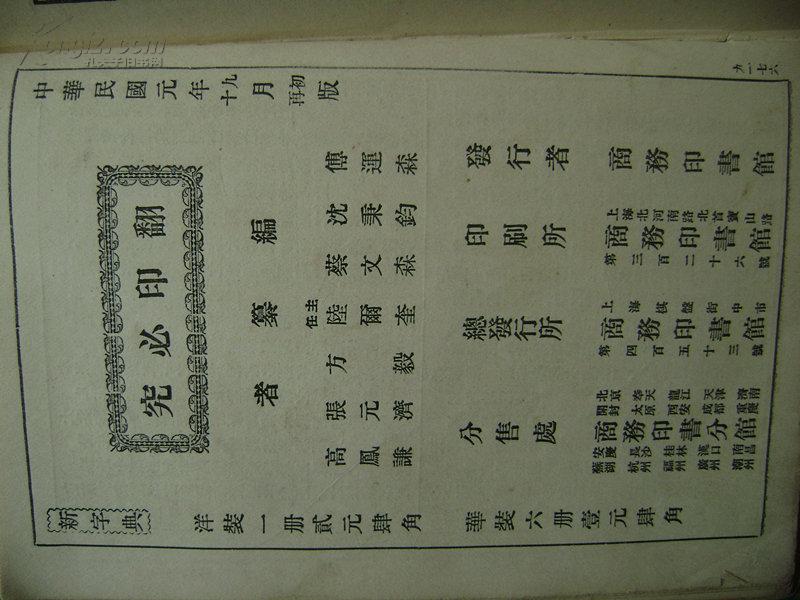 九一七六
中華民國元年九月初版
十 再
翻印必究
編纂者
傅運森
沈秉鈞
蔡文森
主任 陸爾奎
方毅
張元濟
高鳳謙
發行者 商務印書館
上海北河南路北首寶山路
印刷所 商務印書館
第三百二十六號
上海棋盤街中市
總發行所 商務印書館
第四百五十三號
北京 奉天 龍江 天津 濟南
開封 太原 西安 成都 重慶
分售處 商務印書分館
安慶 長沙 桂林 漢口 南昌
蕪湖 杭州 福州 廣州 潮州
新字典
洋裝一册貳元肆角
華裝六册壹元肆角